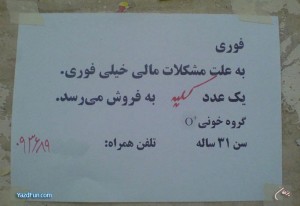 فوری
به علت مشکلات مالی خیلی فوری.
یک عدد کلیه به فروش می‌رسد.
گروه خونی O+
سن ۳۱ ساله تلفن همراه:
۰۹۳۶۸۹
YazdFun.com